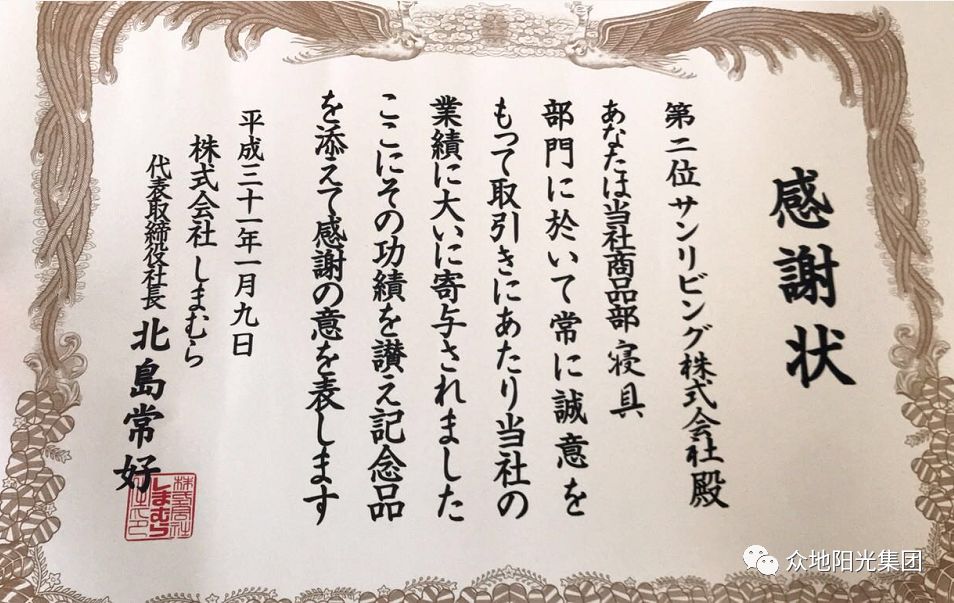 感謝状
第二位サンリビング株式会社殿
あなたは当社商品部寝具
部門に於いて常に誠意を
もって取引きにあたり当社の
業績に大いに寄与されました
ここにその功績を讃え記念品
を添えて感謝の意を表します
平成三十一年一月九日
株式会社しまむら
代表取締役社長 北島常好
株式会社
しまむら
众地阳光集团